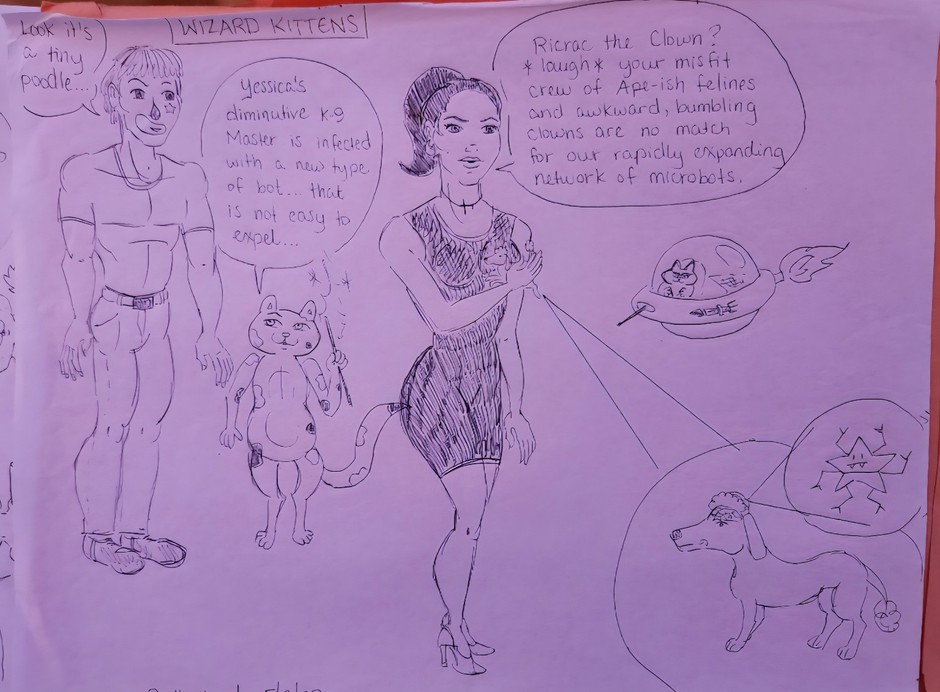 WIZARD KITTENS
Look it's
a tiny
poodle...
Yessica's
diminutive K-9
Master is infected
with a new type
of bot... that
is not easy to
expel...
Ricrac the Clown?
*laugh* your misfit
crew of Ape-ish felines
and awkward, bumbling
clowns are no match
for our rapidly expanding
network of microbots.